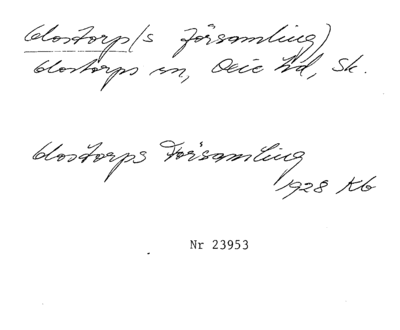 Glostorp(s församling)
Glostorps sn, Oxie hd, Sk.
Glostorps Församling
1928 Kb
Nr 23953